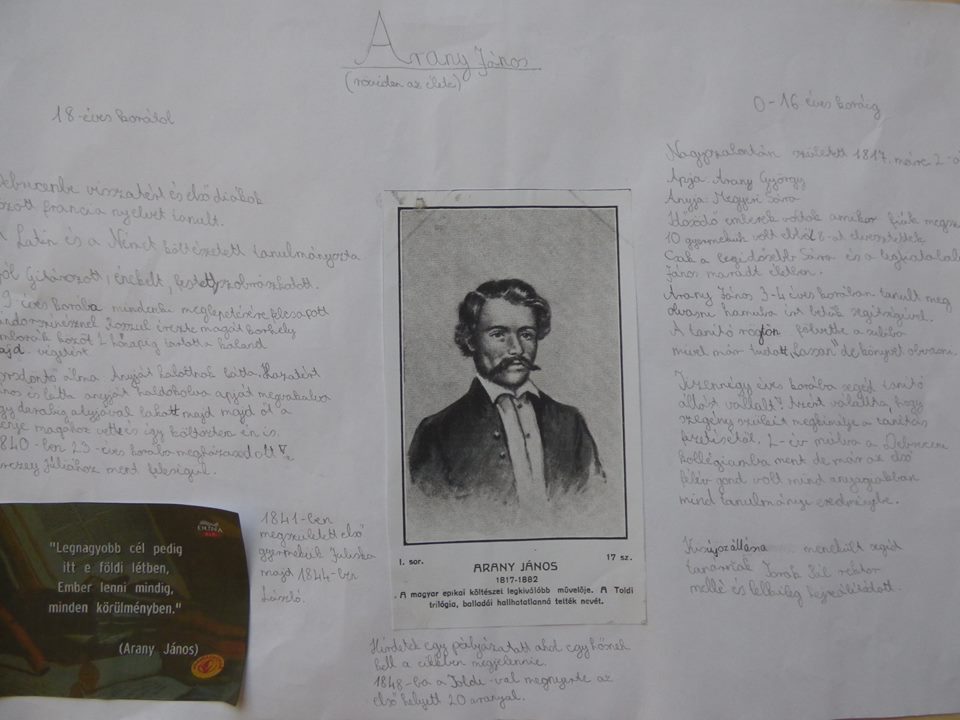 Arany János
(röviden az élete)
18-éves korától
Debrecenbe visszatért és első diákok
között francia nyelvet tanult.
A Latin és a Német költészetett tanulmányozta
jól Gitározott, énekelt, festett, szobrászkodott.
9 éves korába mindenki meglepetésére felcsapott
ándorszinésznek rosszul érezte magát korhely
cimborák közöt 2 hónapig tartott a kaland
majd végetért
orsdöntő álma. Anyját halottnak látta. Hazatért
János és látta anyját haldokolva apját megvakulva
egy darabig atyjával lakott majd majd őt a
nénje magához vette és így költöztem én is.
1840-ben 23-éves korába megházasodott
Juliához ment feleségül.
"Legnagyobb cél pedig
itt e földi létben,
Ember lenni mindig,
minden körülményben."
(Arany János)
1841-ben
megszületett első
gyermekük Juliska
majd 1844-ben
László.
I. sor.
17 sz.
ARANY JÁNOS
1817-1882
A magyar epikai költészet legkiválóbb művelője. A Toldi
trilógia, balladái halhatatlanná tették nevét.
Hirdetek egy pályázatott ahol egy hősnek
kell a cikkben megjelennie.
1848-ba a Toldi-val megnyerte az
első helyett 20 arannyal.
0-16 éves koráig
Nagyszalontán született 1817. márc. 2-á
Apja: Arany György
Anyja: Megyeri Sára
Idősödő emberek voltak amikor fiúk megszü
10 gyermekük volt ebből 8-at elvesztettek
Csak a legidősebb Sára és a legfiatalabb
János maradt életben.
Arany János 3-4 éves korában tanult meg
olvasni hamuba írt betűk segítségével.
A tanító rögtön felvette a suliba
mivel már tudott "lassan" de könyvet olvasni.
Tizennégy éves korába segéd tanító
állást vállalt. Azért vállalta, hogy
szegény szüleit megkímélje a tanítás
fizetésétől. 2-év múlva a Debreceni
kollégiumba ment de már az első
félév gond volt mind anyagiakban
mind tanulmányi eredménybe.
Kisújszállásra menekült segéd
tanárnak Török Pál rektor
mellé és lelkileg helyreállítódott.